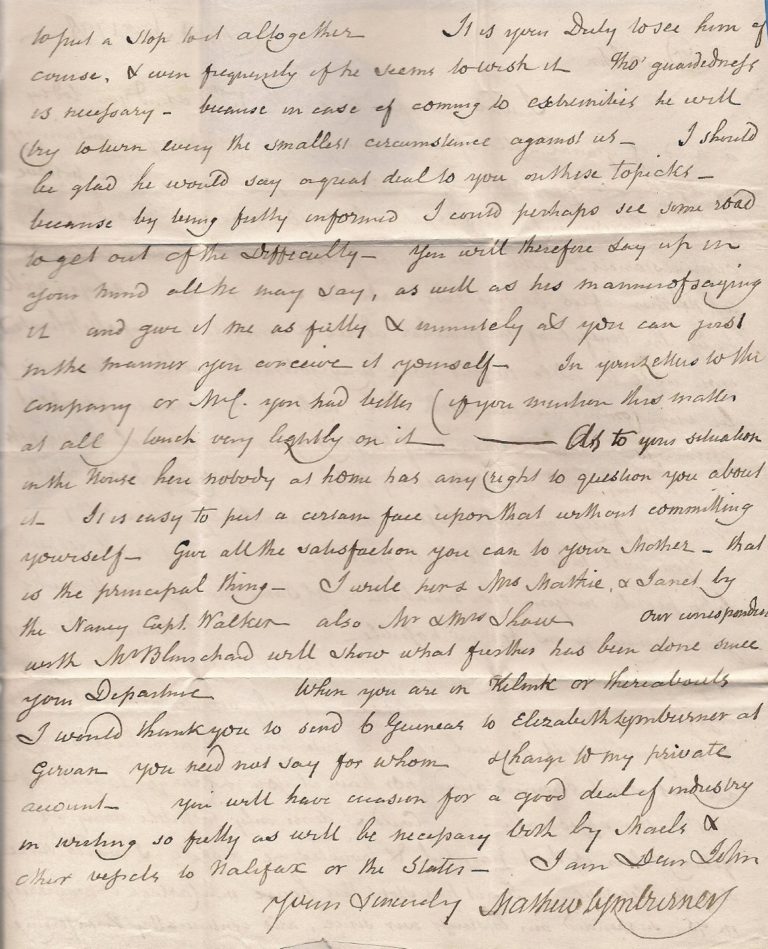 to put a stop to it altogether It is your Duty to see him of
course, & even frequently if he seems to wish it Tho' guardedness
is necessary - because in case of coming to extremities he will
try to turn every the smallest circumstance against us - I should
be glad he would say a great deal to you on these topicks -
because by being fully informed I could perhaps see some road
to get out of the Difficulty - You will therefore Lay up in
your mind all he may say, as well as his manner of saying
it and give it me as fully & minutely as you can just
in the manner you conceive it yourself - In your Letters to the
company or Mr C. you had better (if you mention this matter
at all) touch very lightly on it - As to your situation
in the House here nobody at home has any right to question you about
it - It is easy to put a certain face upon that without committing
yourself - Give all the satisfaction you can to your Mother - that
is the principal thing - I write her & Mrs Mathie, & Janet by
the Nancy Capt. Walker also Mr & Mrs Shaw our correspondce
with Mr Blanchard will show what further has been done since
your Departure When you are in or thereabouts
I would thank you to send 6 Guineas to Elizabeth Lymburner at
Girvan you need not say for whom & charge to my private
account - you will have occasion for a good deal of industry
in writing so fully as will be necessary both by Maels &
other vessels to Halifax or the States - I am Dear John
Yours Sincerely Mathew Lymburner